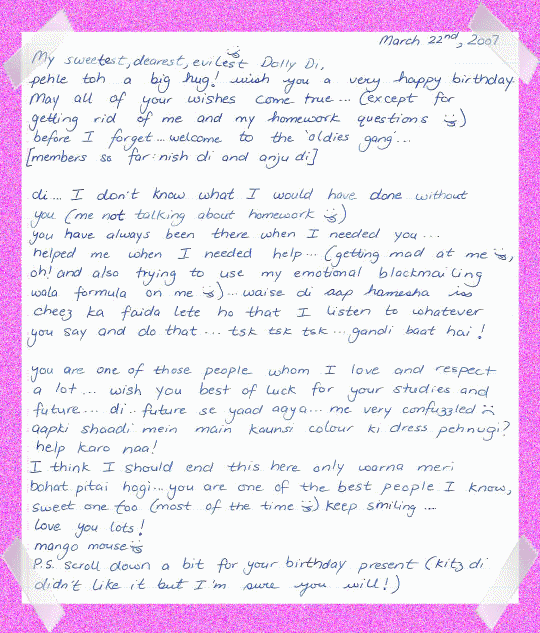 March 22nd, 2007
My sweetest, dearest, evilest Dolly Di,
pehle toh a big hug! wish you a very happy birthday
May all of your wishes come true... (except for
getting rid of me and my homework questions)
before I forget... welcome to the 'oldies gang'...
[members so far: nish di and anju di]
di... I don't know what I would have done without
you (me not talking about homework)
you have always been there when I needed you...
helped me when I needed help... (getting mad at me,
oh! and also trying to use my emotional blackmailing
wala formula on me)... waise di aap hamesha iss
cheez ka faida lete ho that I listen to whatever
you say and do that... tsk tsk tsk... gandi baat hai!
you are one of those people whom I love and respect
a lot... wish you best of luck for your studies and
future.... di.. future se yaad aaya... me very confuzzled
aapki shaadi mein main kaunsi colour ki dress pehnugi?
help karo naa!
I think I should end this here only warna meri
bohat pitai hogi... you are one of the best people I know,
sweet one too (most of the time) keep smiling ....
love you lots!
mango mouse
P.S. scroll down a bit for your birthday present (kitz di
didn't like it but I'm sure you will!)